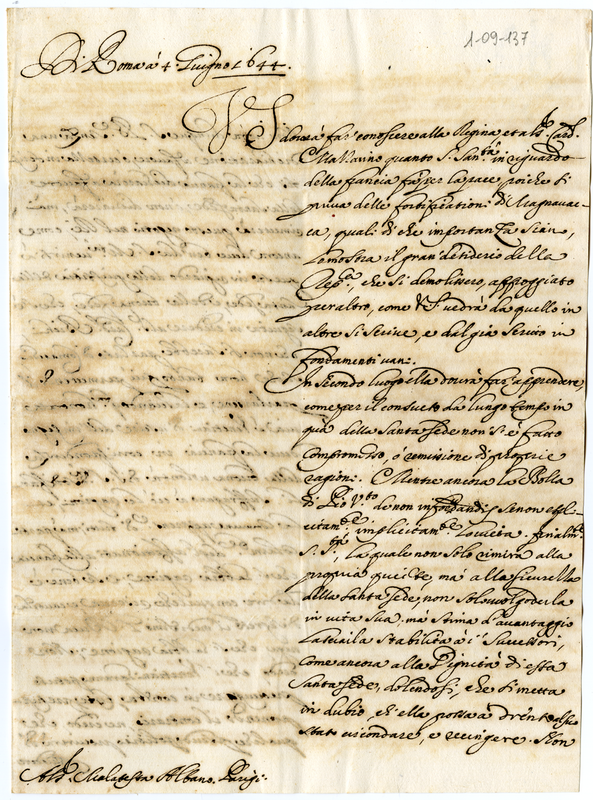 1-09-137
Di Roma à 4 Giugno 1644.
V. S. dovrà far conoscere alla Regina et al S.r Card.
Mazzarino quanto S. San.tà in riguardo
della francia fà per la pace poiche si
priva delle fortificationi di Magnavac-
ca, quali di che importanza sian,
lo mostra il gran desiderio della
Rep.ca, che si demolissero, appoggiato
per altro, come V. S. vedrà da quello in
altre si scrive, e dal già scritto in
fondamenti vani.
In secondo luogo ella dovrà far apprendere,
come per il consueto da lungo tempo in
quà della Santa Sede non si è fatto
compromesso, o remissione di proprie
ragioni. Mentre ancora la Bolla
di Pio V.to de non infeudandis se non espli-
citam.te implicitam.te lo vieta. finalm.te
S. S.tà, la quale non solo rimira alla
propria quiete, mà alla sicurezza
della Santa Sede, non solo vuol goderla
in vita sua mà stima d'avantaggio
lasciarla stabilita à i Successori,
come ancora alla Dignità di essa
Santa Sede, dolendosi, che si metta
in dubio, ch'ella possa à drento al suo
stato circondare, e recingere. Non
Al S.r Malatesta Albano. Parigi.